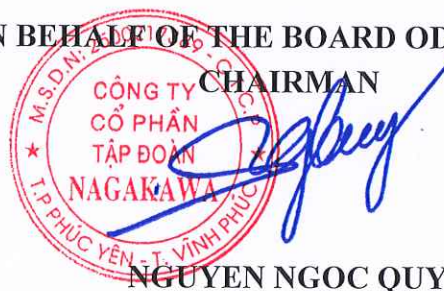 N BEHALF OF THE BOARD OD
CHAIRMAN
M.S.D.N:
CÔNG TY
CỔ PHẦN
TẬP ĐOÀN
NAGAKAWA
T.P PHÚC YÊN - T. VĨNH PHÚC
NGUYEN NGOC QUY